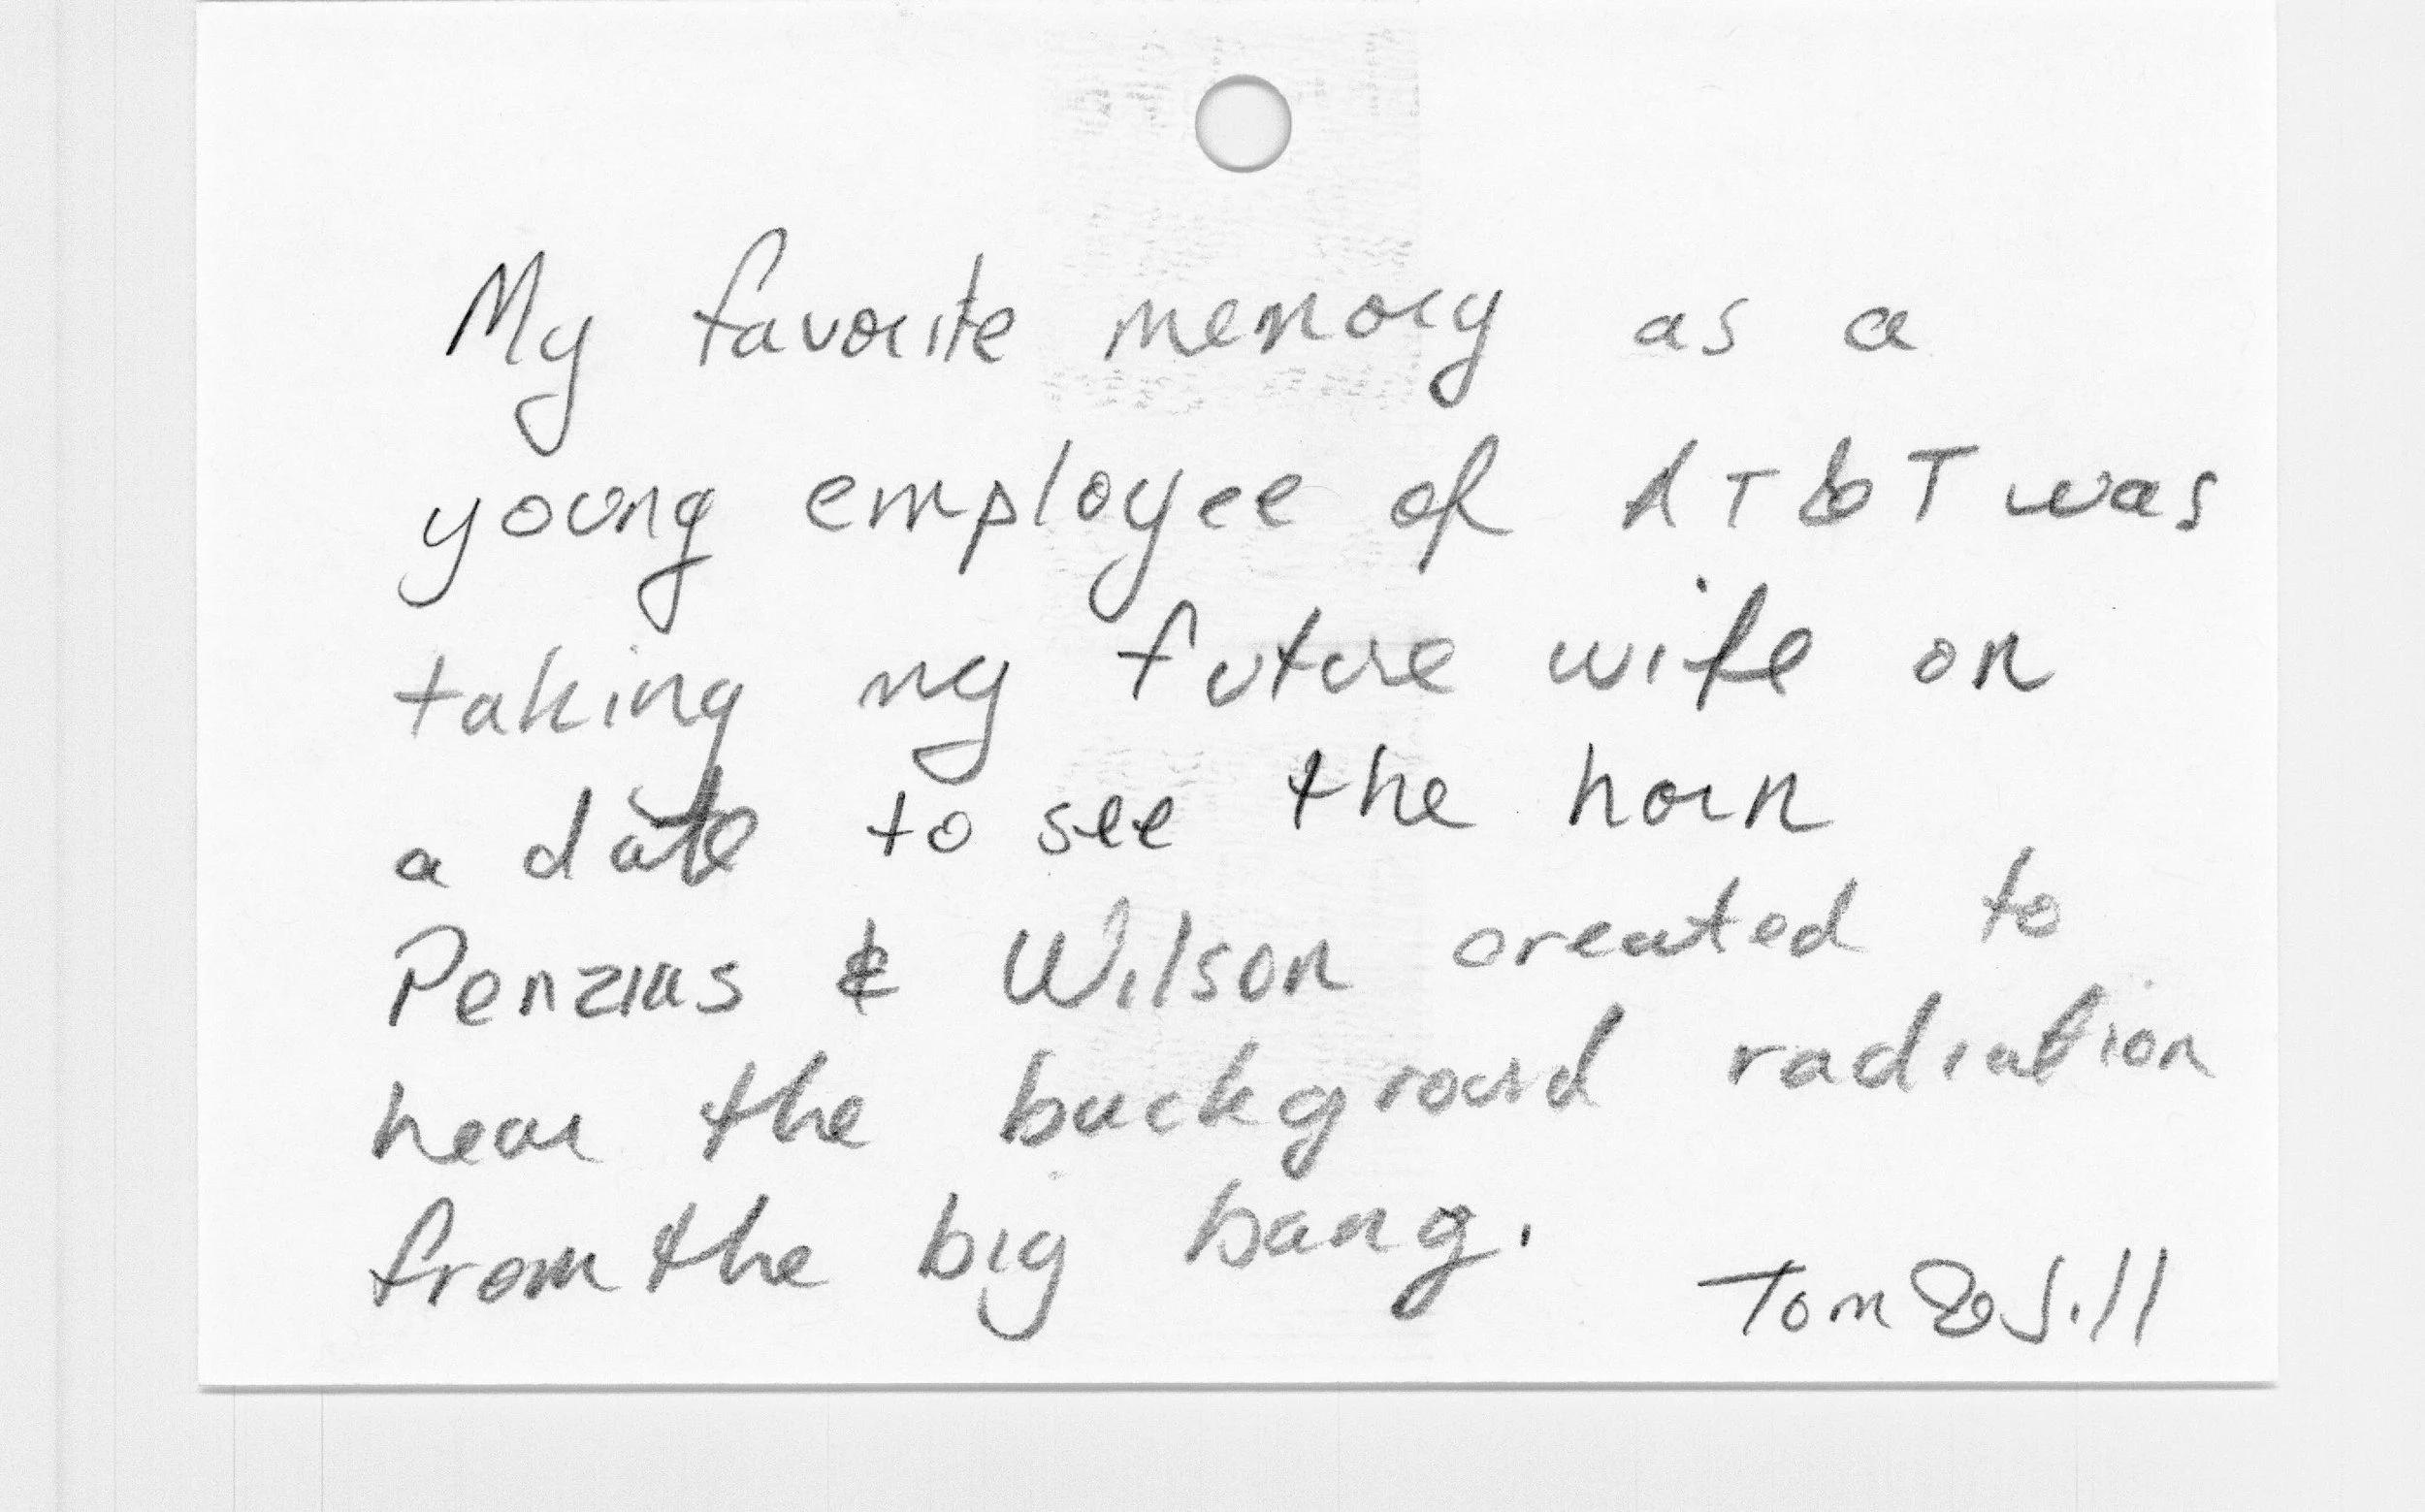 My favorite memory as a
young employee of AT&T was
taking my future wife on
a date to see the horn
Penzias & Wilson created to
hear the background radiation
from the big bang.
Tom & Jill